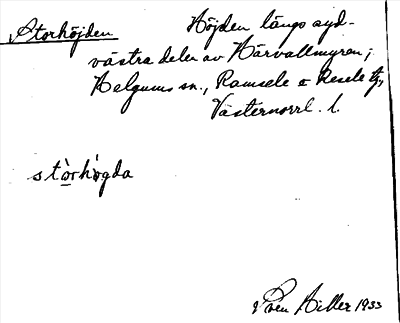 Storhöjden Höjden längs syd-
västra delen av Härvallmyran;
Helgums sn., Ramsele o Resele tg,
Västernorrl. l.
stòrhögda
Sven Hiller 1933